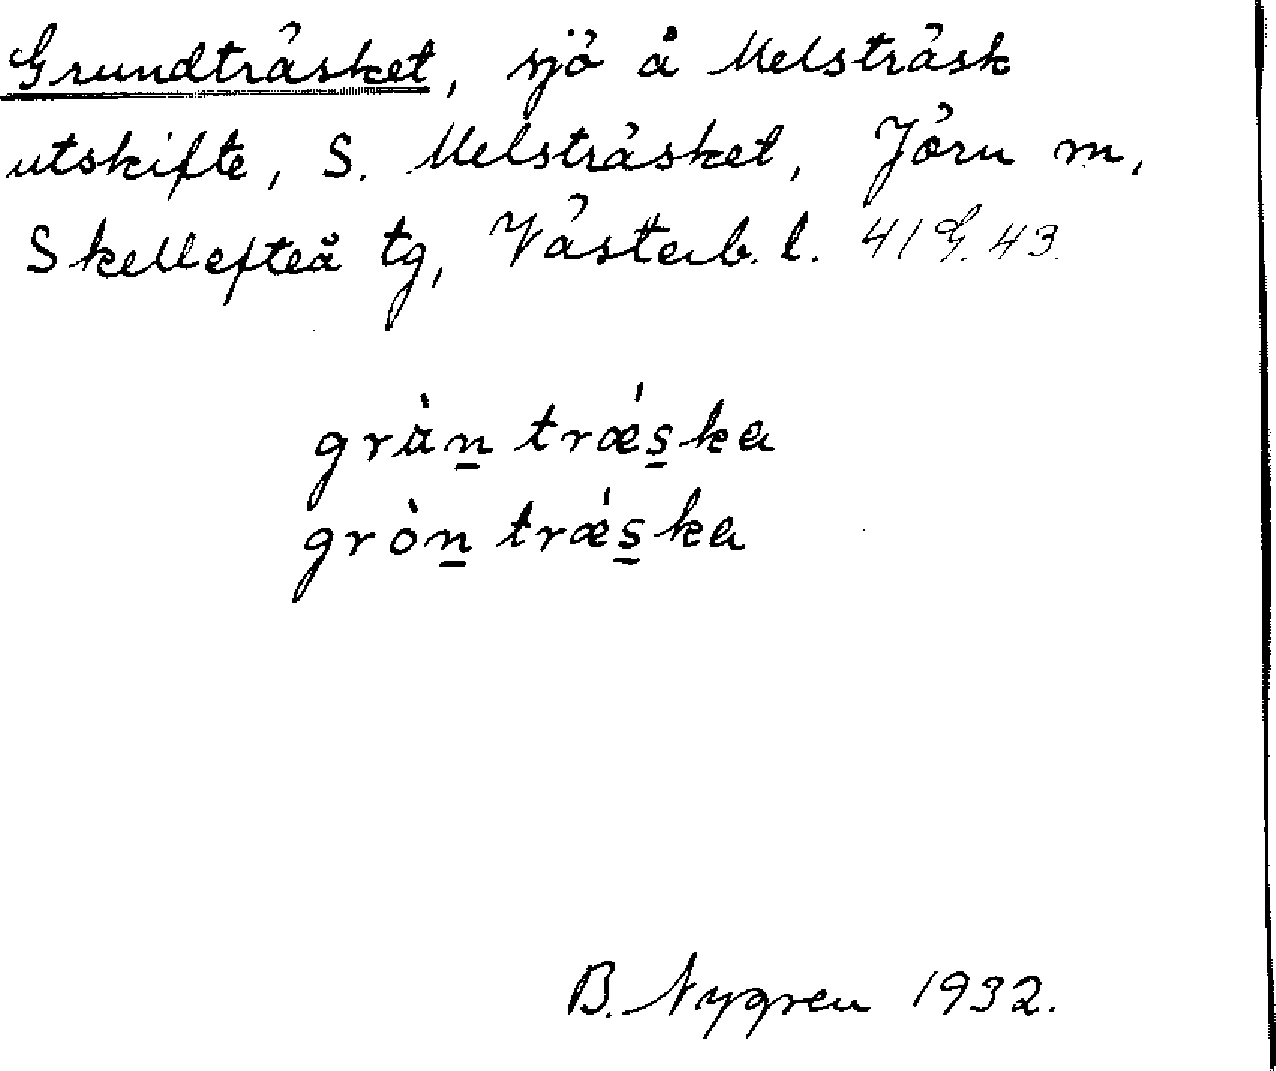 Grundträsket, sjö å Melsträsk
utskifte, S. Melsträsket, Jörn m,
Skellefteå tg, Västerb. l. 41 G. 43.
gràn̲ trǽs̲ka
gròn̲ trǽs̲ka
B. Nygren 1932.